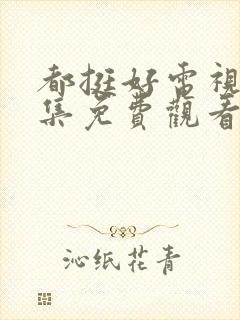 都挺好電視
集免費觀看
沁纸花青